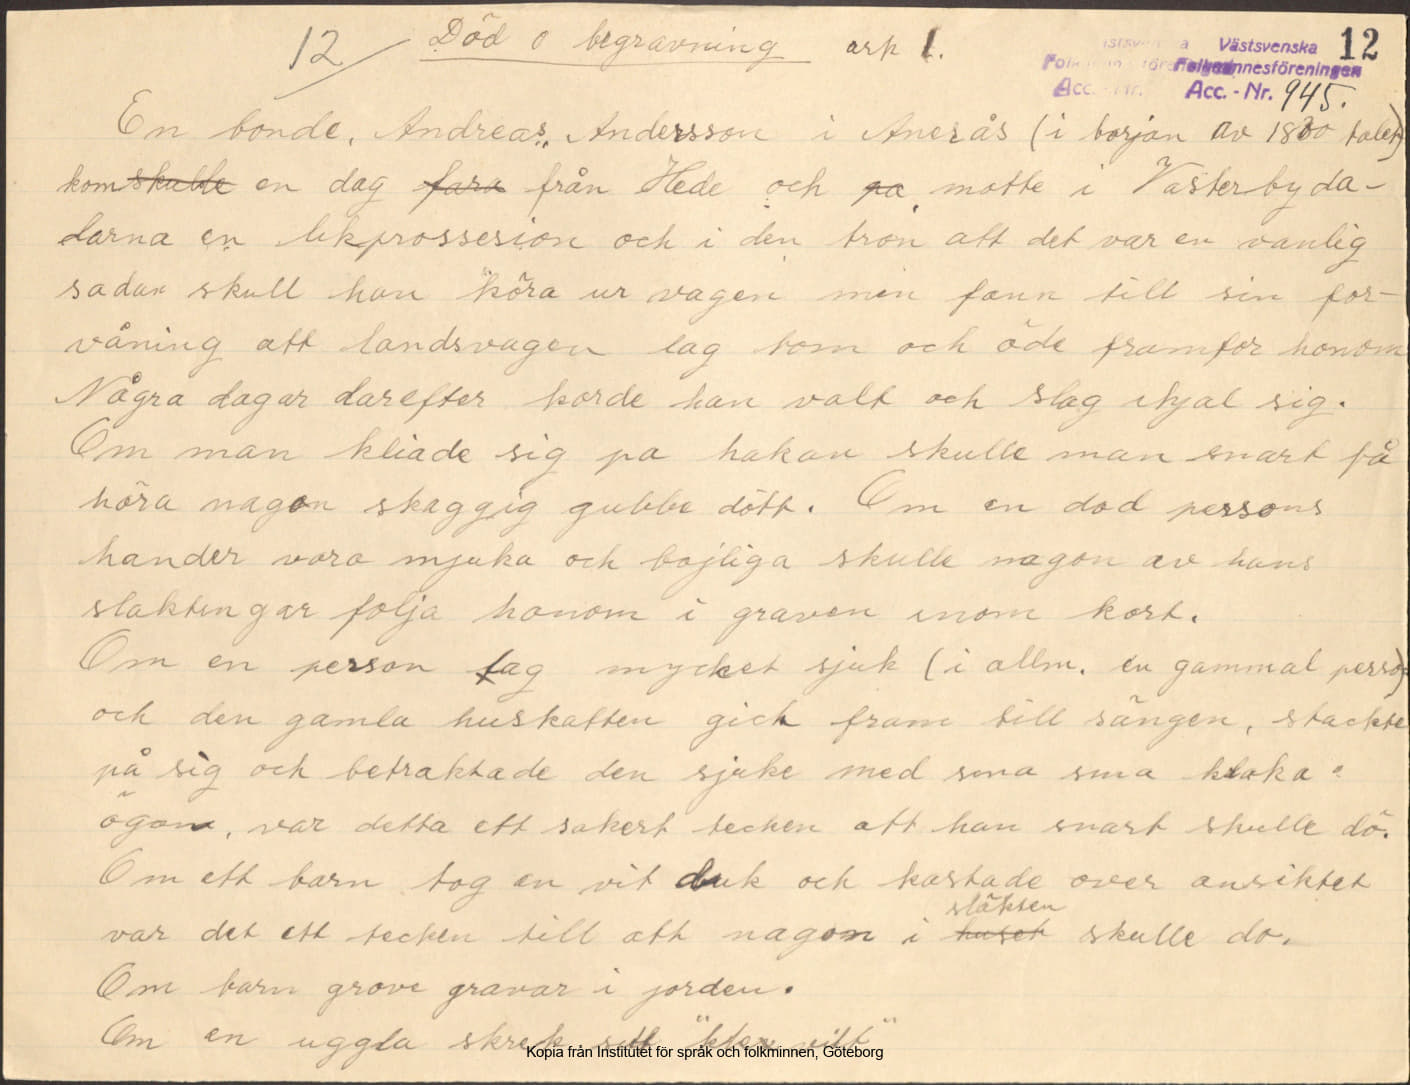 12/ Död o begravning ark 1.
12
Västsvenska
Folkminnesföreningen
Acc. - Nr. 945.
En bonde, Andreas Andersson i Anerås (i borjan av 1800 talet)
kom skulle en dag fara från Hede och pa motte i Vasterbyda-
larna en likprossesion och i den tron att det var en vanlig
sadan skull han köra ur vagen men fann till sin for-
våning att landsvagen lag tom och öde framfor honom
Några dagar darefter korde han valt och slag ihjal sig.
Om man kliade sig pa hakan skulle man snart få
höra nagon skaggig gubbe dött. Om en dod persons
hander voro mjuka och bojliga skulle nagon av hans
slaktingar folja honom i graven inom kort.
Om en person lag mycket sjuk (i allm. en gammal person)
och den gamla huskatten gick fram till sängen, stackte
på sig och betraktade den sjuke med sina sma kloka
ögon, var detta ett sakert tecken att han snart skulle dö.
Om ett barn tog en vit duk och kastade over ansiktet
släkten
var det ett tecken till att nagon i huset skulle do.
Om barn grove gravar i jorden.
Om en uggla skrek sitt "klev vitt"
Kopia från Institutet för språk och folkminnen, Göteborg